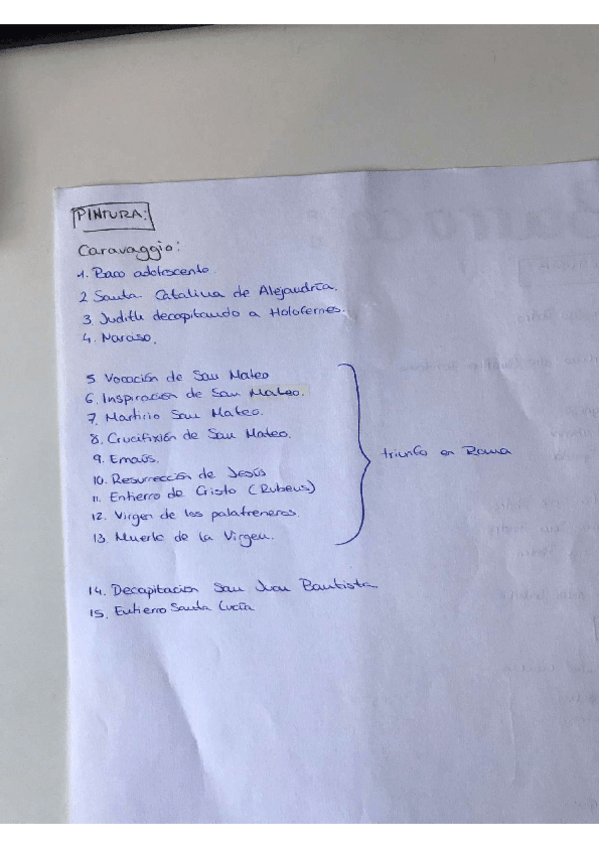 PINTURA:
Caravaggio:
1. Baco adolescente
2 Santa Catalina de Alejandría.
3. Judith decapitando a Holofernes.
4. Narciso.
5 Vocación de San Mateo
6. Inspiración de San Mateo.
7. Martirio San Mateo.
8. Crucifixión de San Mateo.
9. Emaús.
10. Resurrección de Jesús
11. Entierro de Cristo (Rubens)
12. Virgen de los palafreneros.
13. Muerte de la Virgen.
triunfo en Roma
14. Decapitación San Juan Bautista
15. Entierro Santa Lucía